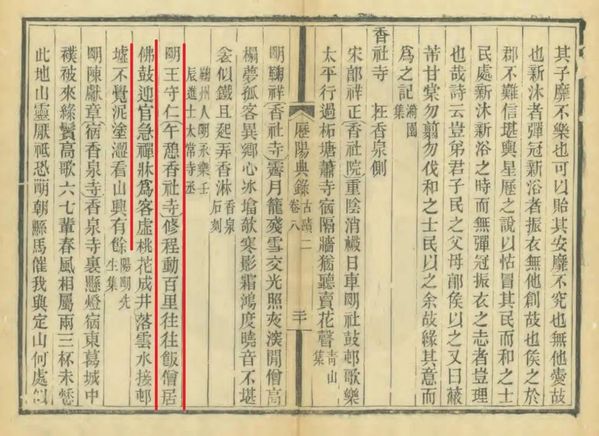 其子靡不樂也可以貽其安靡不究也無他變故
也新沐者彈冠新浴者振衣無他創故也侯之於
郡不難信堪輿星歷之說以怙冒其民而和之士
民處新沐新浴之時而無彈冠振衣之志者豈理
也哉詩云豈弟君子民之父母部侯以之又曰蔽
芾甘棠勿翦勿伐和之士民以之余故緣其意而
爲之記
集
香社寺 在香泉側
宋郭祥正香社院重陰消日車明社鼓邨歌樂
太平行過柘塘蕭寺宿隔牆猶聽賣花聲 青山集
歷陽典錄 卷八 古蹟二 二十
明鞠祥香社寺霽月籠殘雪交光照夾溪開僧高
榻夢孤客異鄉心冰欹寒影霜鴻度曉音不堪
衾似鐵且起弄香淋 香泉石刻
鞠州人明永樂壬辰進士太常寺丞
明王守仁午憩香社寺修程動百里往往飯僧居
佛鼓迎官急禪牀爲客虛桃花成井落雲水接邨
墟不覺泥塗澀看山興有餘 陽明先生集
明陳獻章宿香泉寺香泉寺裏懸燈宿東葛城中
襆被來綠鬢高歌六七輩春風相屬兩三杯未愁
此地山靈厭祗恐前朝縣馬催我與定山何處似